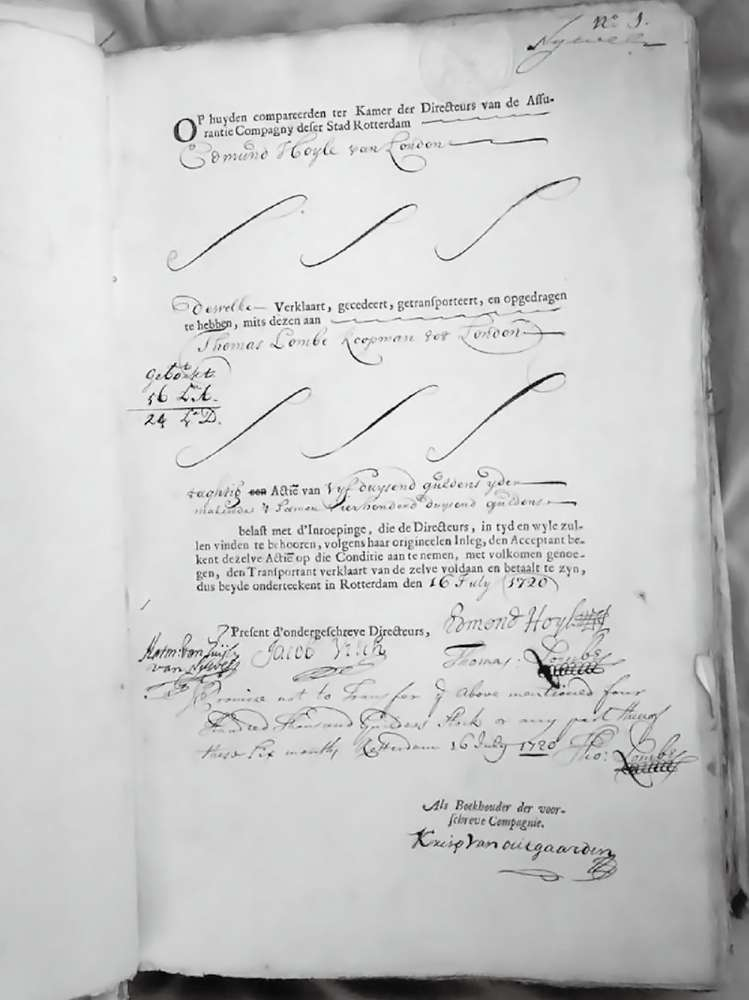 No 1.
Nyevelt
OP huyden compareerden ter Kamer der Directeurs van de Assu-
rantie Compagny deser Stad Rotterdam
Edmund Hoyle van London
Dewelke Verklaart, gecedeert, getransporteert, en opgedragen
te hebben, mits dezen aan
Thomas Lombe Koopman tot London
56 La A.
24 La D.
taghtig een Actiē van Vyf duysend guldens yder
makende t Samen Vierhonderd duysend guldens
belast met d'Inroepinge, die de Directeurs, in tyd en wyle zul-
len vinden te behooren, volgens haar origineelen Inleg, den Acceptant be-
kent dezelve Actiē op die Conditie aan te nemen, met volkomen genoe-
gen, den Transportant verklaart van de zelve voldaan en betaalt te zyn,
dus beyde onderteekent in Rotterdam den 16 July 1720
Present d'ondergeschreve Directeurs,
Edmond Hoyle
van Nyevelt
Jacob
Thomas: Lombe
I Promise not to Transfer ye Above mentioned four
Hundred thousand Guilders Stock or any part thereof
these Six months Rotterdam 16 July 1720 Tho: Lombe
Als Boekhouder der voor-
schreve Compagnie.